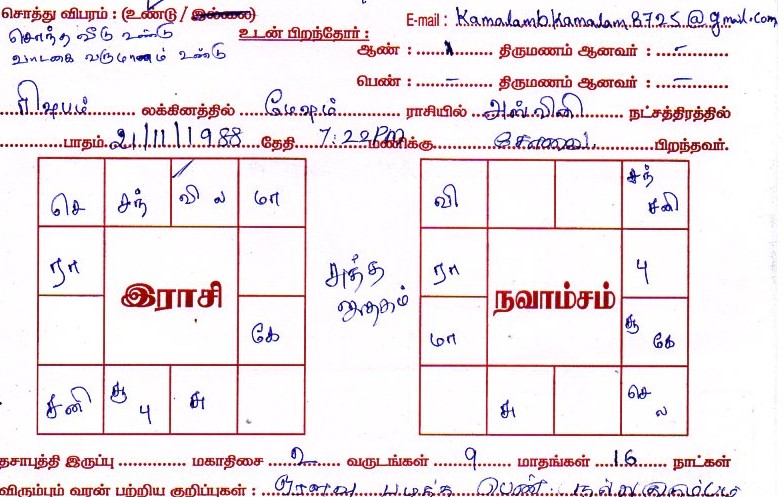 சொத்து விபரம் : (உண்டு / இல்லை)
E-mail : Kamalamb.kamalam.8725@gmail.com
சொந்த வீடு உண்டு
உடன் பிறந்தோர் :
வாடகை வருமானம் உண்டு
ஆண் : 1 திருமணம் ஆனவர் : -
பெண் : - திருமணம் ஆனவர் : -
ரிஷபம் லக்கினத்தில் மேஷம் ராசியில் அஸ்வினி நட்சத்திரத்தில்
பாதம் 21/11/1988 தேதி 7:22PM மணிக்கு பிறந்தவர்.
செ சந் வி ல மா
ரா
இராசி
கே
சனி சூ பு சு
சுத்த ஜாதகம்
வி சந் சனி
ரா பு
நவாம்சம்
மா சூ கே
சு செ ல
தசாபுத்தி இருப்பு மகாதிசை 2 வருடங்கள் 9 மாதங்கள் 16 நாட்கள்
விரும்பும் வரன் பற்றிய குறிப்புகள் : படித்த பெண்